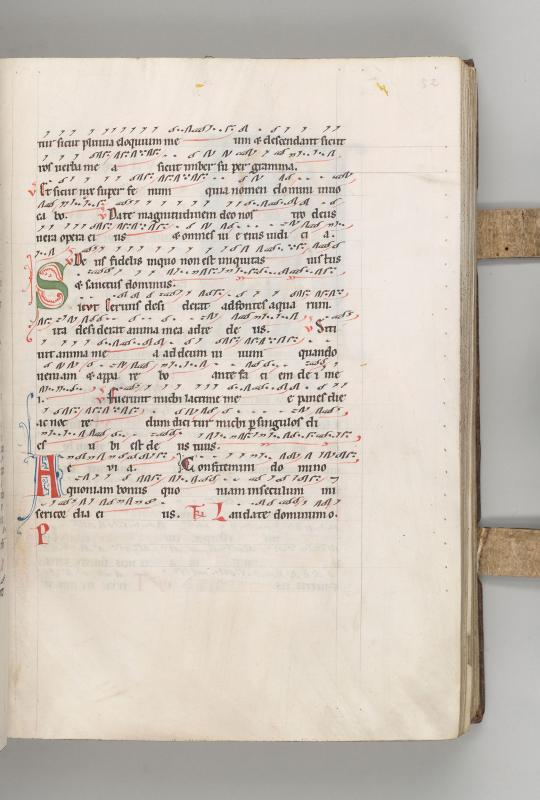 52
tur sicut pluuia eloquium me um & descendant sicut
ros uerba me a sicut imber su per gramina.
v Et sicut nix super fe num quia nomen domini inuo
ca bo. v Date magnitudinem deo nos tro deus
uera opera ei us & omnes ui e eius iudi ci a.
v De us fidelis in quo non est iniquitas iustus
& sanctus dominus.
Sicut ceruus desi derat ad fontes aqua rum.
ita desiderat anima mea ad te de us. v Siti
uit anima me a ad deum ui uum quando
ueniam & appa re bo ante fa ci em de i me
i. v Fuerunt michi lacrime me e panes die
ac noc te dum dici tur michi p singulos di
es u bi est de us tuus.
Ae via. Confitemini do mino
quoniam bonus quo niam in seculum mi
sericor dia ei us. Laudate dominum o.
P